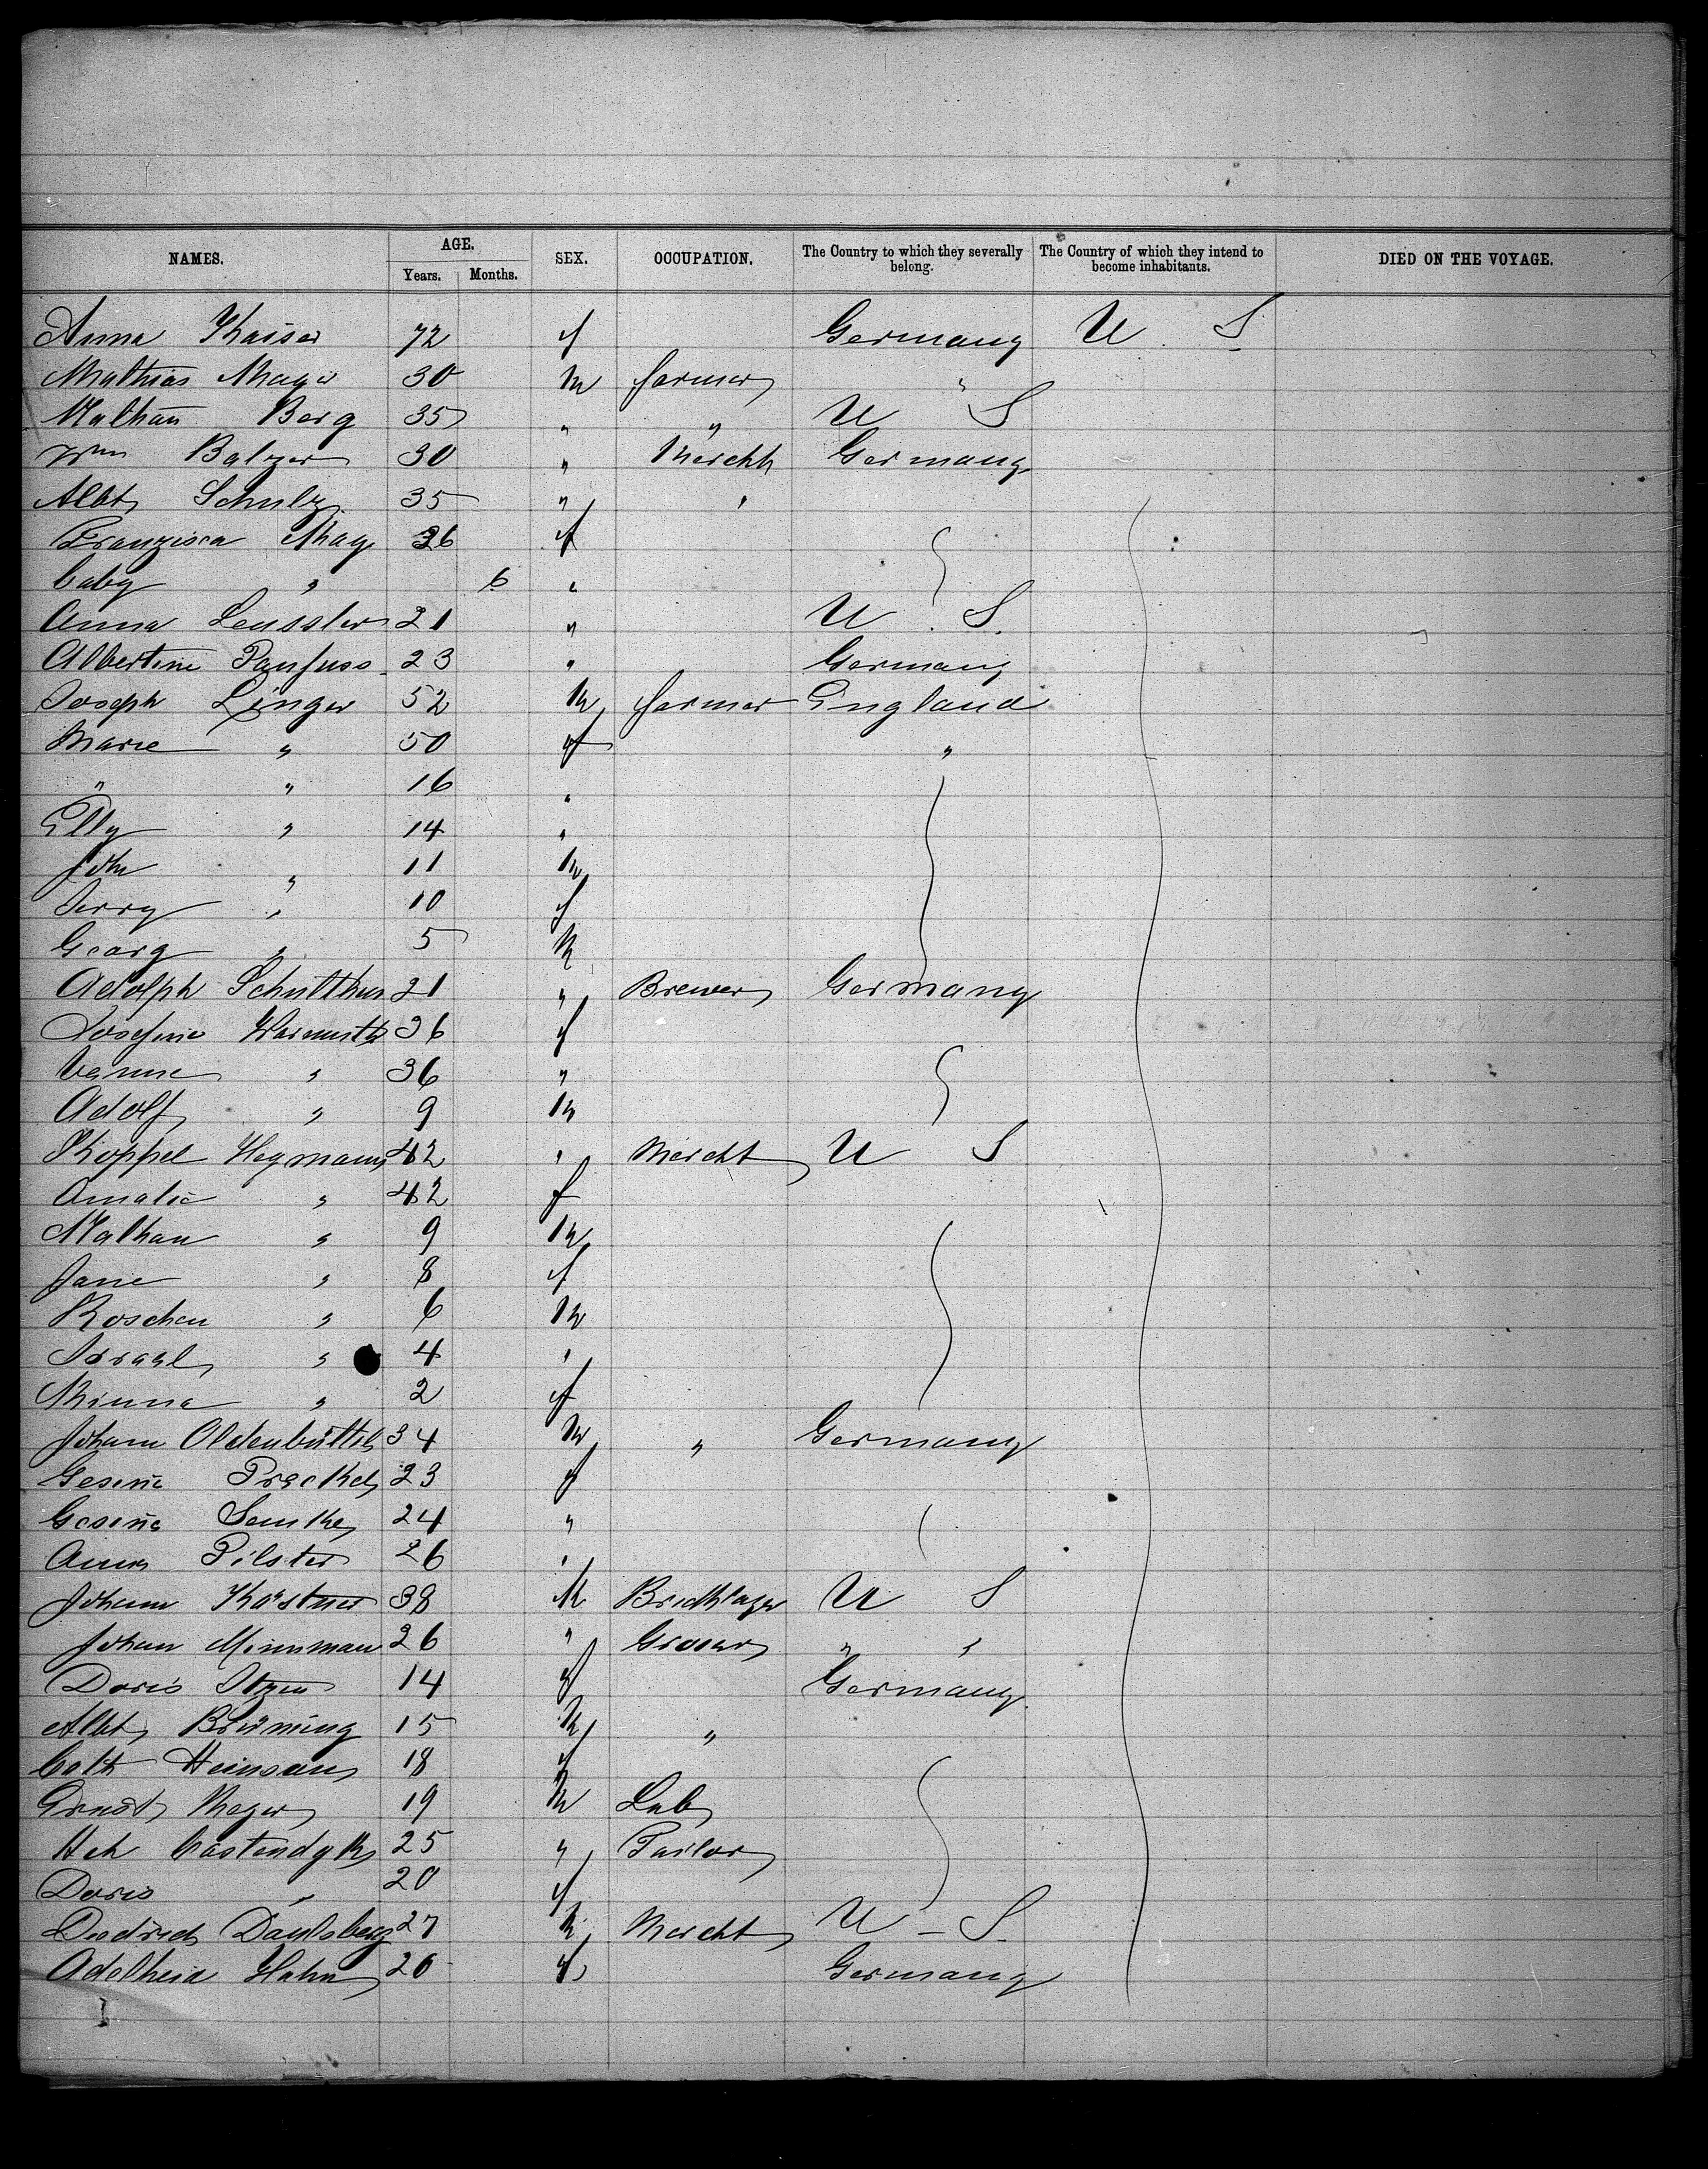 NAMES. AGE. Years. Months. SEX. OCCUPATION. The Country to which they severally belong. The Country of which they intend to become inhabitants. DIED ON THE VOYAGE.
Anna Kaiser 72 f Germany U S
Mathias Mayer 30 m farmer "
Nathan Berg 35 " " U S
Wm Balzer 30 " Mercht Germany
Albt Schulz 35 " "
Franzisca May 26 f
baby " 6 "
Anna Leussler 21 " U S
Albertine Panfuss 23 " Germany
Joseph Linger 52 m farmer England
Marie " 50 f "
" " 16 "
Elly " 14 "
John " 11 m
Jerry " 10 f
Georg " 5 m
Adolph Schulthess 21 " Brewer Germany
Josefine Warmuth 36 f
" 36 "
Adolf " 9 m
Koppel Heymann 42 " Mercht U S
Amalie " 42 f
Nathan " 9 m
Janie " 8 f
Roschen " 6 m
Israel " 4 "
Minna " 2 f
Johann Oldenbüttel 34 m " Germany
Gesine 23 f
Gesine Lemke 24 "
Anna Pilster 26 "
Johann Kästner 38 m Bricklayer U S
Johan Minnman 26 " Grocer " "
Doris Itzen 14 f Germany
Albt Brüning 15 m "
Cath Heinsann 18 f
Ernst Meyer 19 m Lab
Hch Castendyk 25 " Tailor
Doris " 20 f
Diedrich Daulsberg 27 m Mercht U - S
Adelheid Hahn 20 f Germany